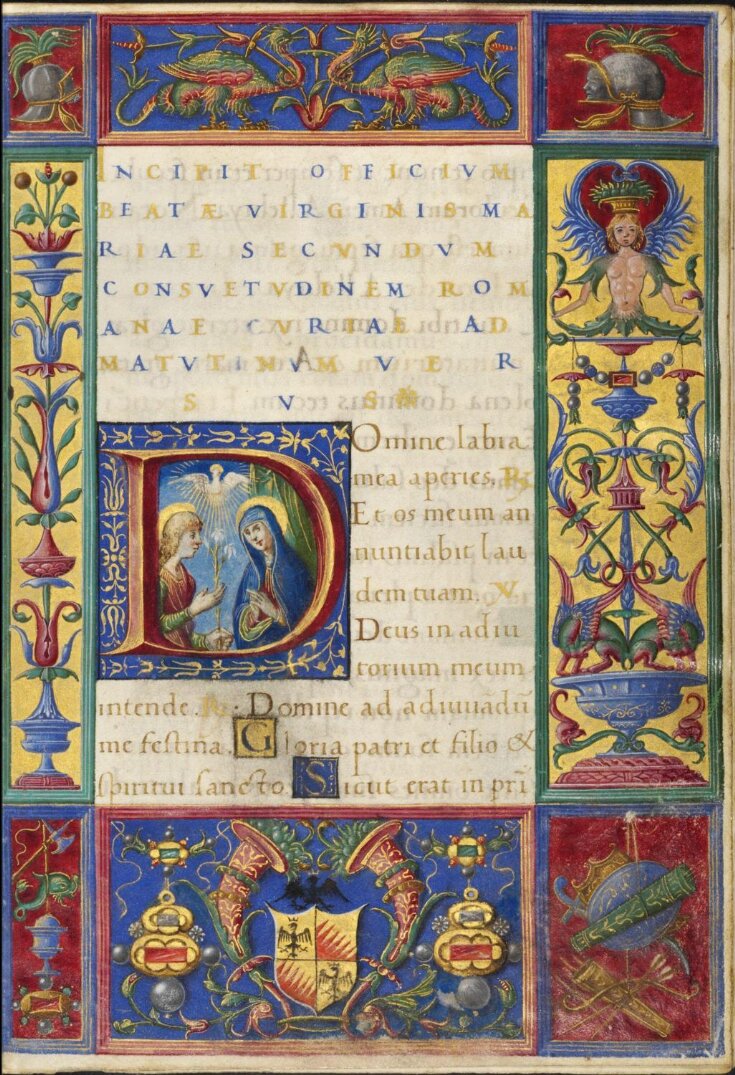 INCIPIT OFFICIVM
BEATÆ VIRGINIS MA
RIAE SECVNDVM
CONSVETVDINEM ROM
ANAE CVRIAE AD
MATVTINVM VER
SVS
Domine labia
mea aperies. R̷
Et os meum an
nuntiabit lau
dem tuam. V.
Deus in adiu
torium meum
intende. R̷: Domine ad adiuuādū
me festina. Gloria patri et filio &
spiritui sancto. Sicut erat in pri